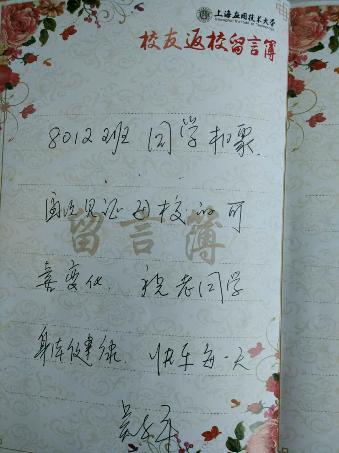 上海应用技术大学
校友返校留言簿
8012班 同学相聚
见证母校的可
留言簿
喜变化 祝老同学
身体健康 快乐每一天